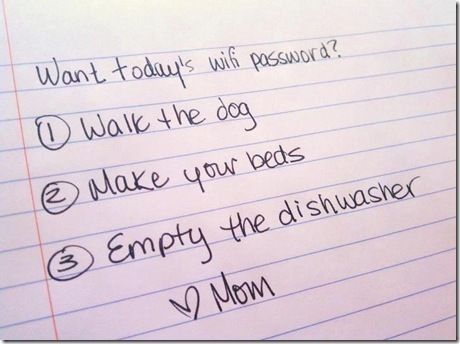 Want today's wifi password?
① Walk the dog
② Make your beds
③ Empty the dishwasher
♡ Mom